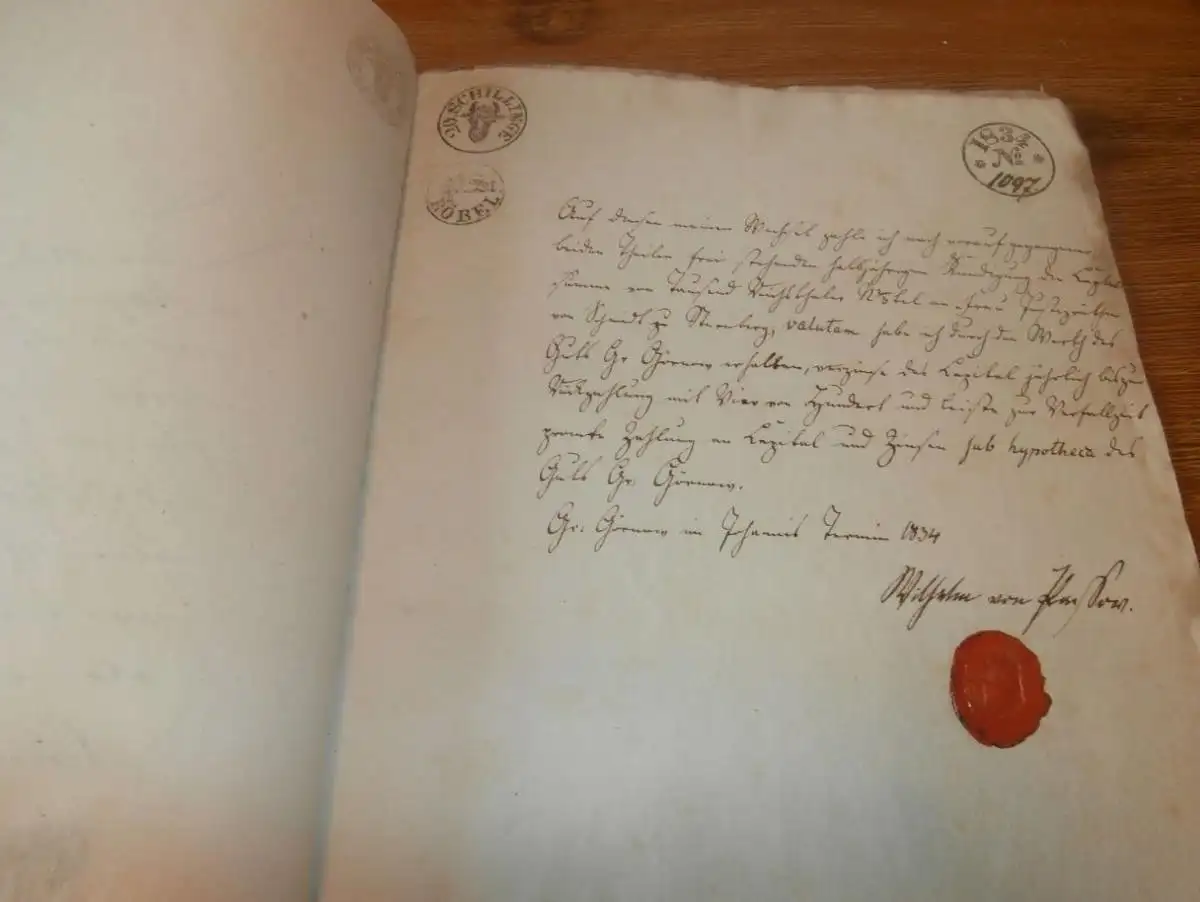 20 SCHILLINGE
RÖBEL
1834
No
1097
Auf diesen meinen Wechsel zahle ich nach vorauf gegangener,
beiden Theilen frei stehenden halbjährigen Kündigung die Capital
Summe von Tausend Reichsthaler an Frau Justizräthin
von Scheidt zu Sternberg, valutam habe ich durch den Werth des
Guts Gr Görnow erhalten, verzinse das Capital jährlich bis zur
Rückzahlung mit Vier von Hundert und leiste zur Verfallzeit
prompte Zahlung an Capital und Zinsen sub hypotheca des
Guts Gr. Görnow.
Gr: Görnow im Johannis Termin 1834
Wilhelm von Passow.